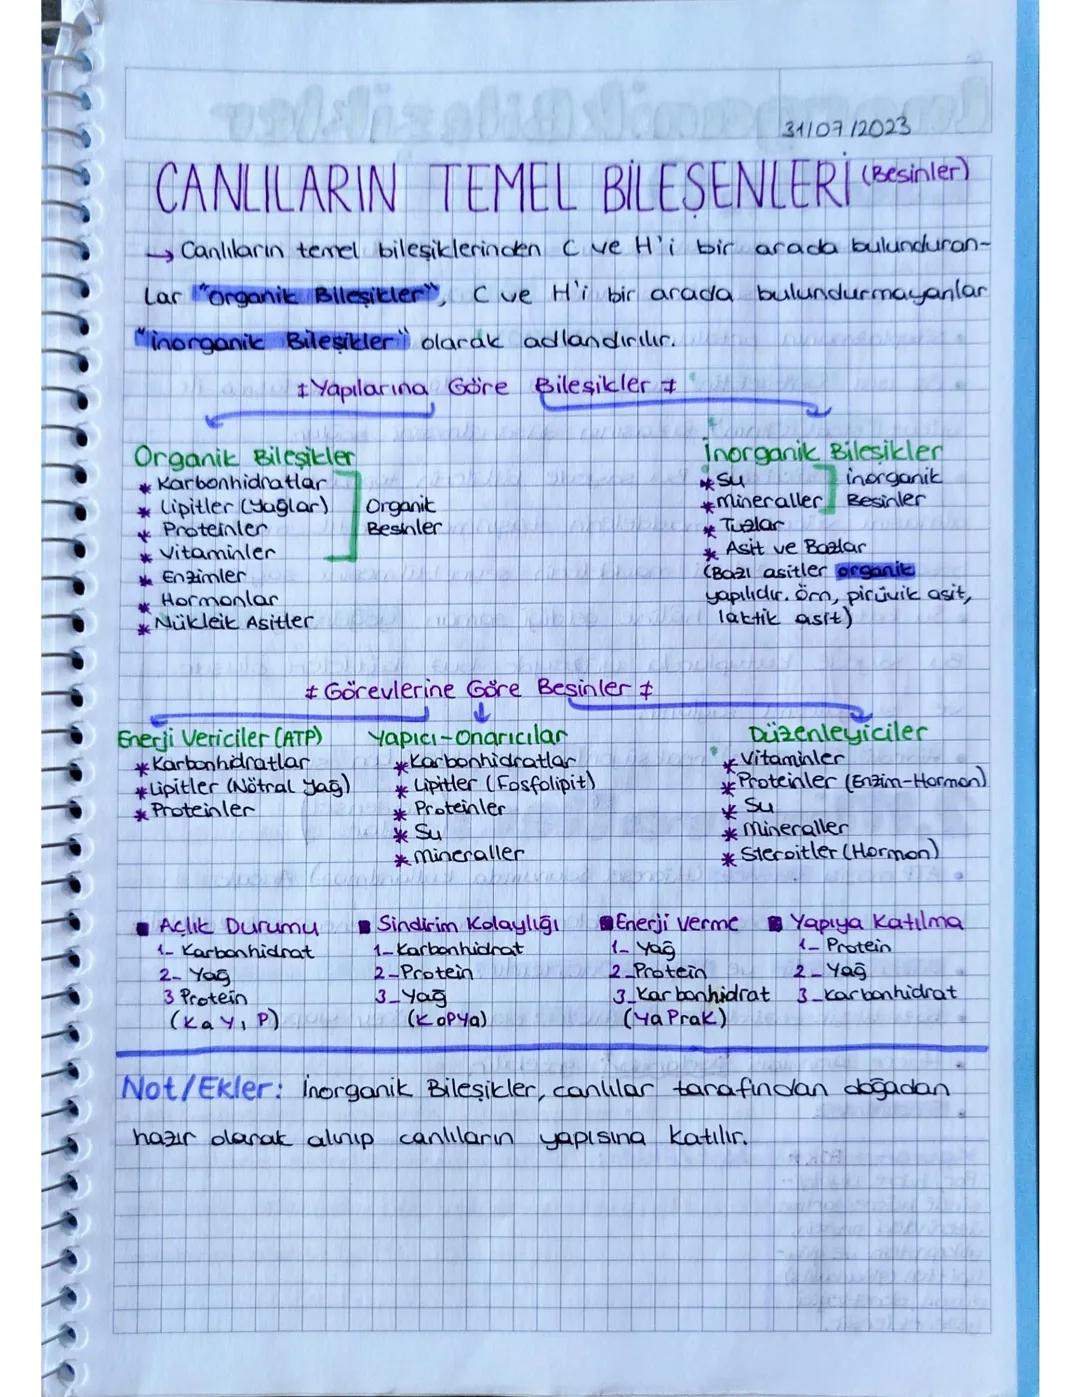 31/07/2023
CANLILARIN TEMEL BİLEŞENLERİ (Besinler)
→ Canlıların temel bileşiklerinden C ve H'i bir arada bulunduran-
lar "Organik Bileşikler", C ve H'i bir arada bulundurmayanlar
"inorganik Bileşikler" olarak adlandırılır.
Yapılarına Göre Bileşikler
Organik Bileşikler
* Karbonhidratlar
* Lipitler (Yağlar)
* Proteinler
* Vitaminler
* Enzimler
* Hormonlar
* Nükleik Asitler
Organik
Besinler
İnorganik Bileşikler
* Su
* mineraller
* Tuzlar
* Asit ve Bazlar
(Bazı asitler organik
yapılıdır. örn, pirüvik asit,
laktik asit)
inorganik
Besinler
Görevlerine Göre Besinler
Enerji Vericiler (ATP)
* Karbonhidratlar
* Lipitler (Nötral Yağ)
* Proteinler
Yapıcı-Onarıcılar
* Karbonhidratlar
* Lipitler (Fosfolipit)
* Proteinler
* Su
* mineraller
Düzenleyiciler
* Vitaminler
* Proteinler (Enzim-Hormon)
* Su
* mineraller
* Steroitler (Hormon)
Açlık Durumu
1- Karbonhidrat
2- Yağ
3 Protein
(KaY, P)
Sindirim Kolaylığı
1- Karbonhidrat
2- Protein
3- Yağ
(KoPYa)
Enerji verme
1- Yağ
2- Protein
3- Karbonhidrat
(YaPraK)
Yapıya Katılma
1- Protein
2- Yağ
3- Karbonhidrat
Not/Ekler: İnorganik Bileşikler, canlılar tarafından doğadan
hazır olarak alınıp canlıların yapısına katılır.